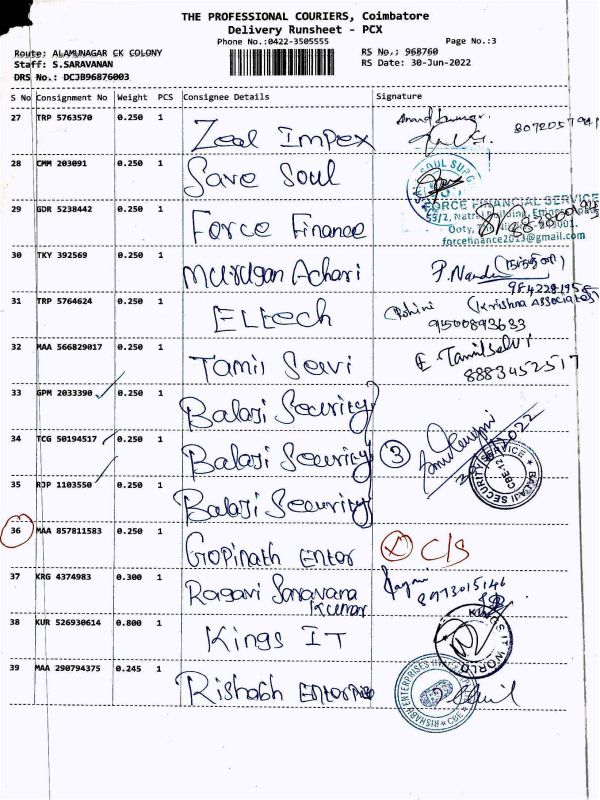 THE PROFESSIONAL COURIERS, Coimbatore
Delivery Runsheet - PCX
Phone No.:0422-3505555 Page No.:3
Route: ALAMUNAGAR CK COLONY RS No.: 968760
Staff: S.SARAVANAN RS Date: 30-Jun-2022
DRS No.: DCJB96876003
S No Consignment No Weight PCS Consignee Details Signature
27 TRP 5763570 0.250 1 Zeal Impex
28 CMM 203091 0.250 1 Save Soul
29 GDR 5238442 0.250 1 Force Finance
FORCE FINANCIAL SERVICE
Ooty,
forcefinance2013@gmail.com
30 TKY 392569 0.250 1 Murugan Achari P. Nandi
9842281958
31 TRP 5764624 0.250 1 Eltech Rohini (Krishna Associates)
9500893633
32 MAA 566829017 0.250 1 Tamil Selvi E. Tamilselvi
8883452517
33 GPM 2033390 0.250 1 Balaji Security
34 TCG 50194517 0.250 1 Balaji Security 3
BALAJI SECURITY SERVICE
35 RJP 1103550 0.250 1 Balaji Security
36 MAA 857811583 0.250 1 Gopinath Enter C/S
37 KRG 4374983 0.300 1 Ragavi Saravana
Kumar
8973015146
38 KUR 526930614 0.800 1 Kings IT
KINGS IT WORLD
39 MAA 290794375 0.245 1 Rishabh Enterprise
RISHABH ENTERPRISES